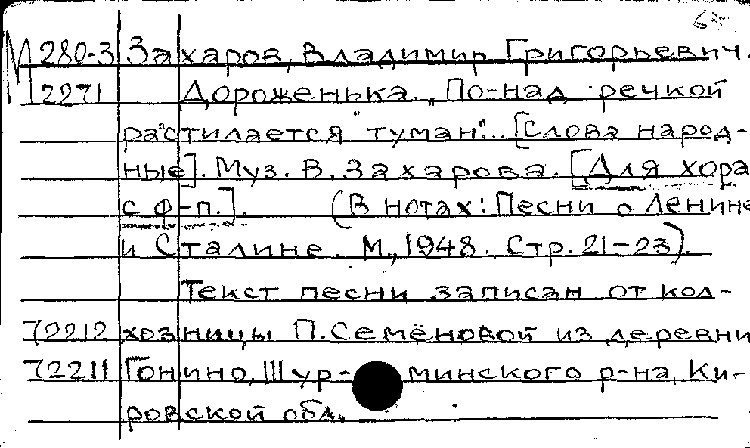 М 280-3 Захаров, Владимир Григорьевич.
12271 Дороженька. „По-над речкой
растилается туман"... [Слова народ-
ные]. Муз. В. Захарова. [Для хора
с ф-п.]. (В нотах: Песни о Ленине
и Сталине. М., 1948. Стр. 21-23).
Текст песни записан от кол-
72212 хозницы П. Семёновой из деревни
72211 Гонино, Шур- минского р-на, Ки-
ровской обл.